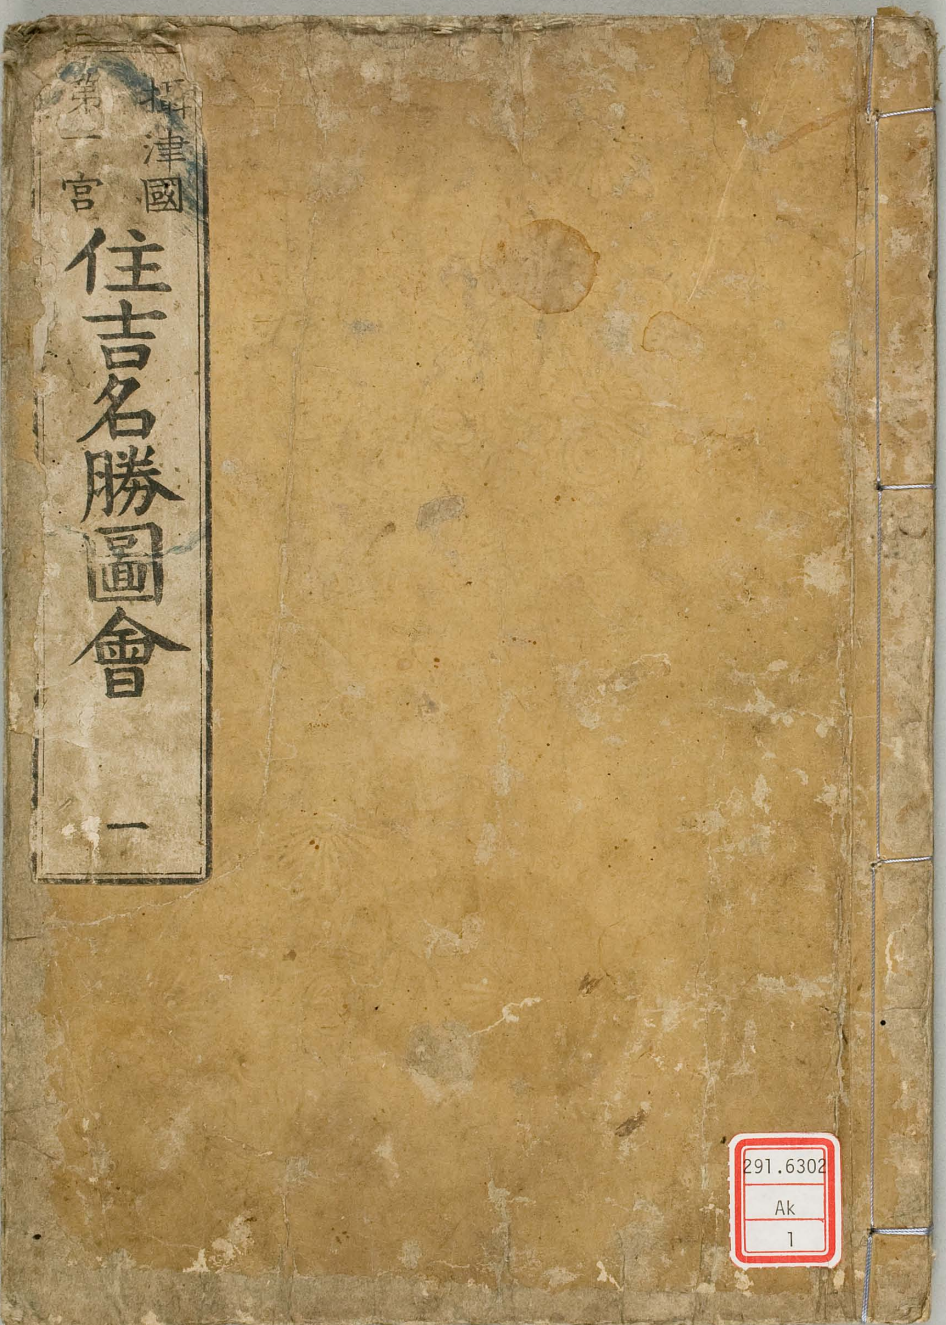 攝津國
第一宮
住吉名勝圖會
一
291.6302
Ak
1